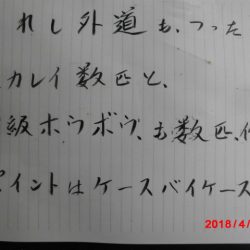 れし外道も、つった
カレイ数匹と、
級ホウボウ、も数匹、
イントはケースバイケース
2018/4/